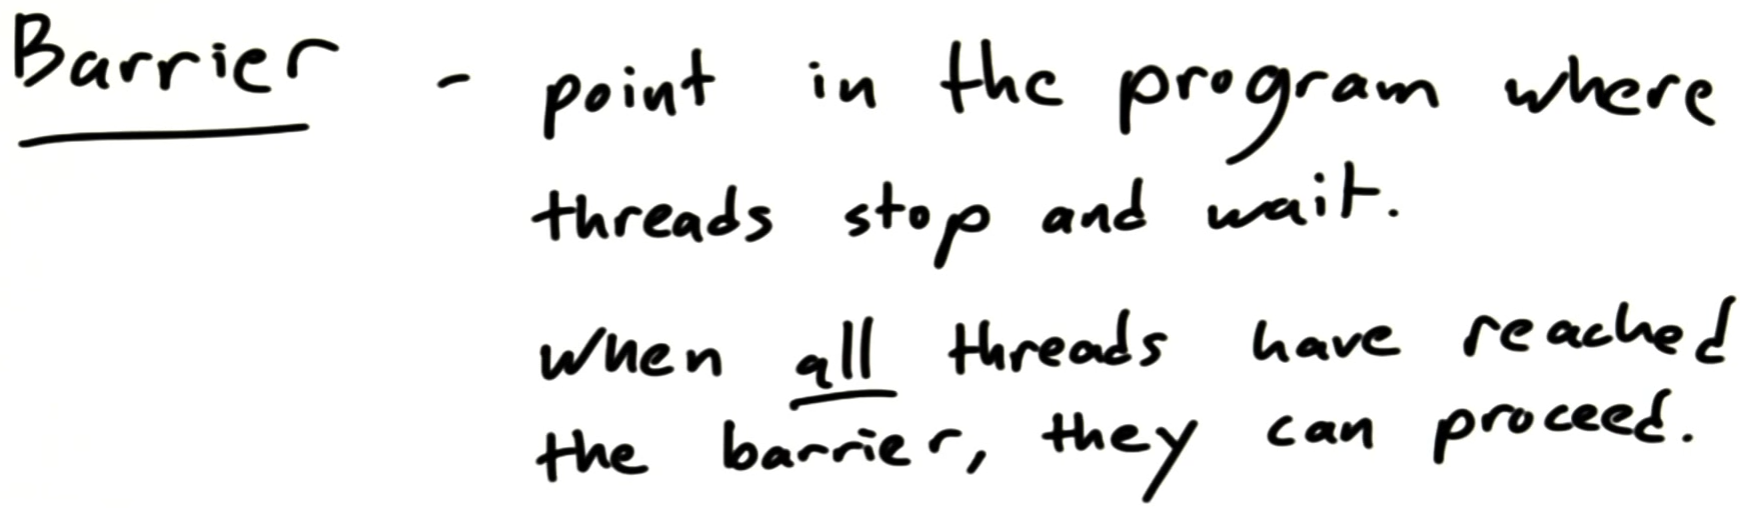 Barrier - point in the program where
threads stop and wait.
when all threads have reached
the barrier, they can proceed.